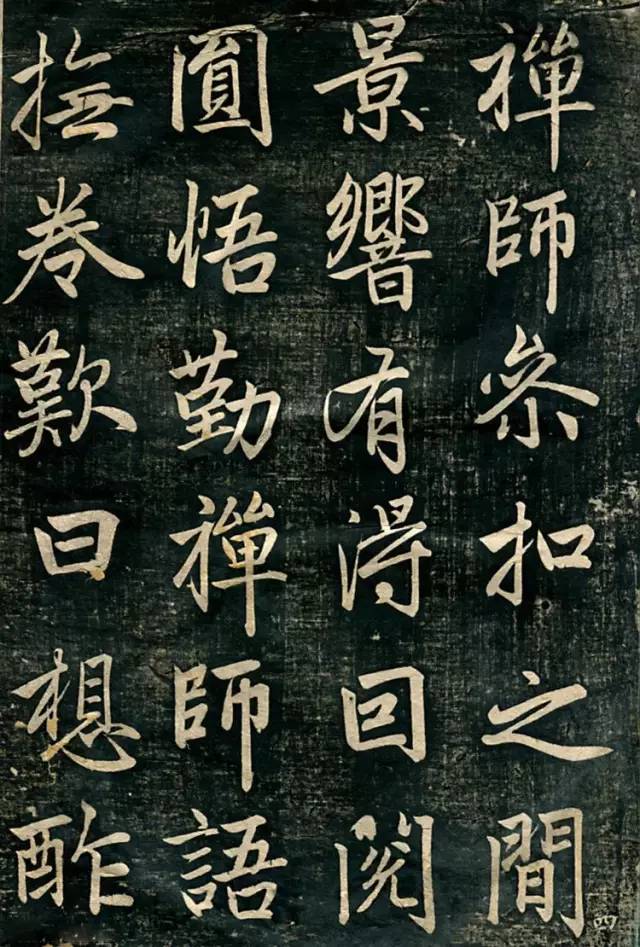 禪師叅扣之間
景響有得回閱
圓悟勤禪師語
撫卷歎曰想酢
四